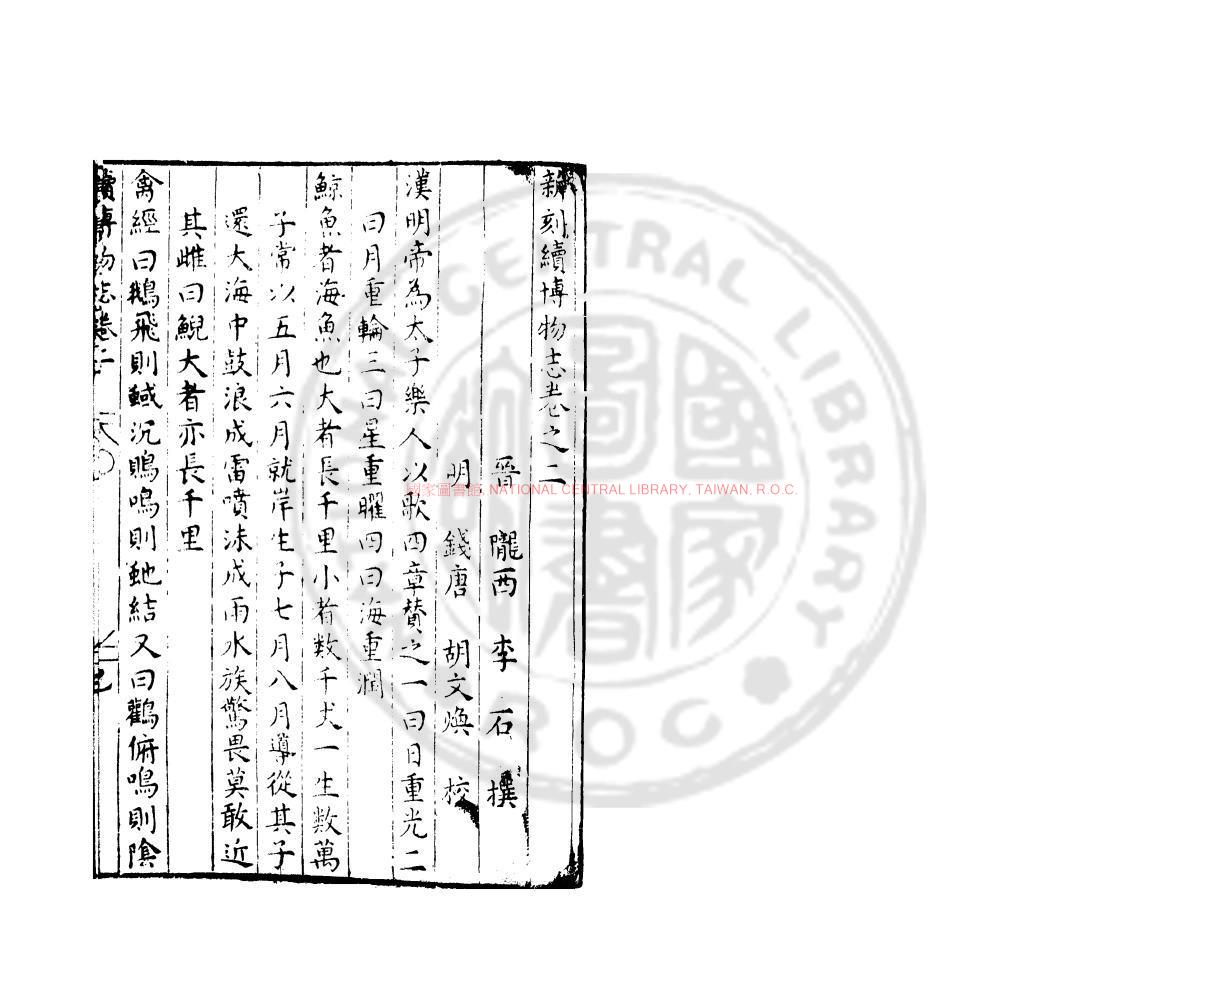 新刻續博物志卷之二
晉 隴西 李 石 撰
明 錢唐 胡文煥 校
漢明帝為太子樂人以歌四章贊之一曰日重光二
曰月重輪三曰星重曜四曰海重潤
鯨魚者海魚也大者長千里小者数千丈一生数萬
子常以五月六月就岸生子七月八月導從其子
還大海中鼓浪成雷噴沫成雨水族驚畏莫敢近
其雌曰鯢大者亦長千里
禽經曰鵝飛則蜮沉鵙鳴則蚍結又曰鸛俯鳴則陰
續博物志卷二
國家圖書館, NATIONAL CENTRAL LIBRARY, TAIWAN, R.O.C.
CENTRAL LIBRARY
R O C